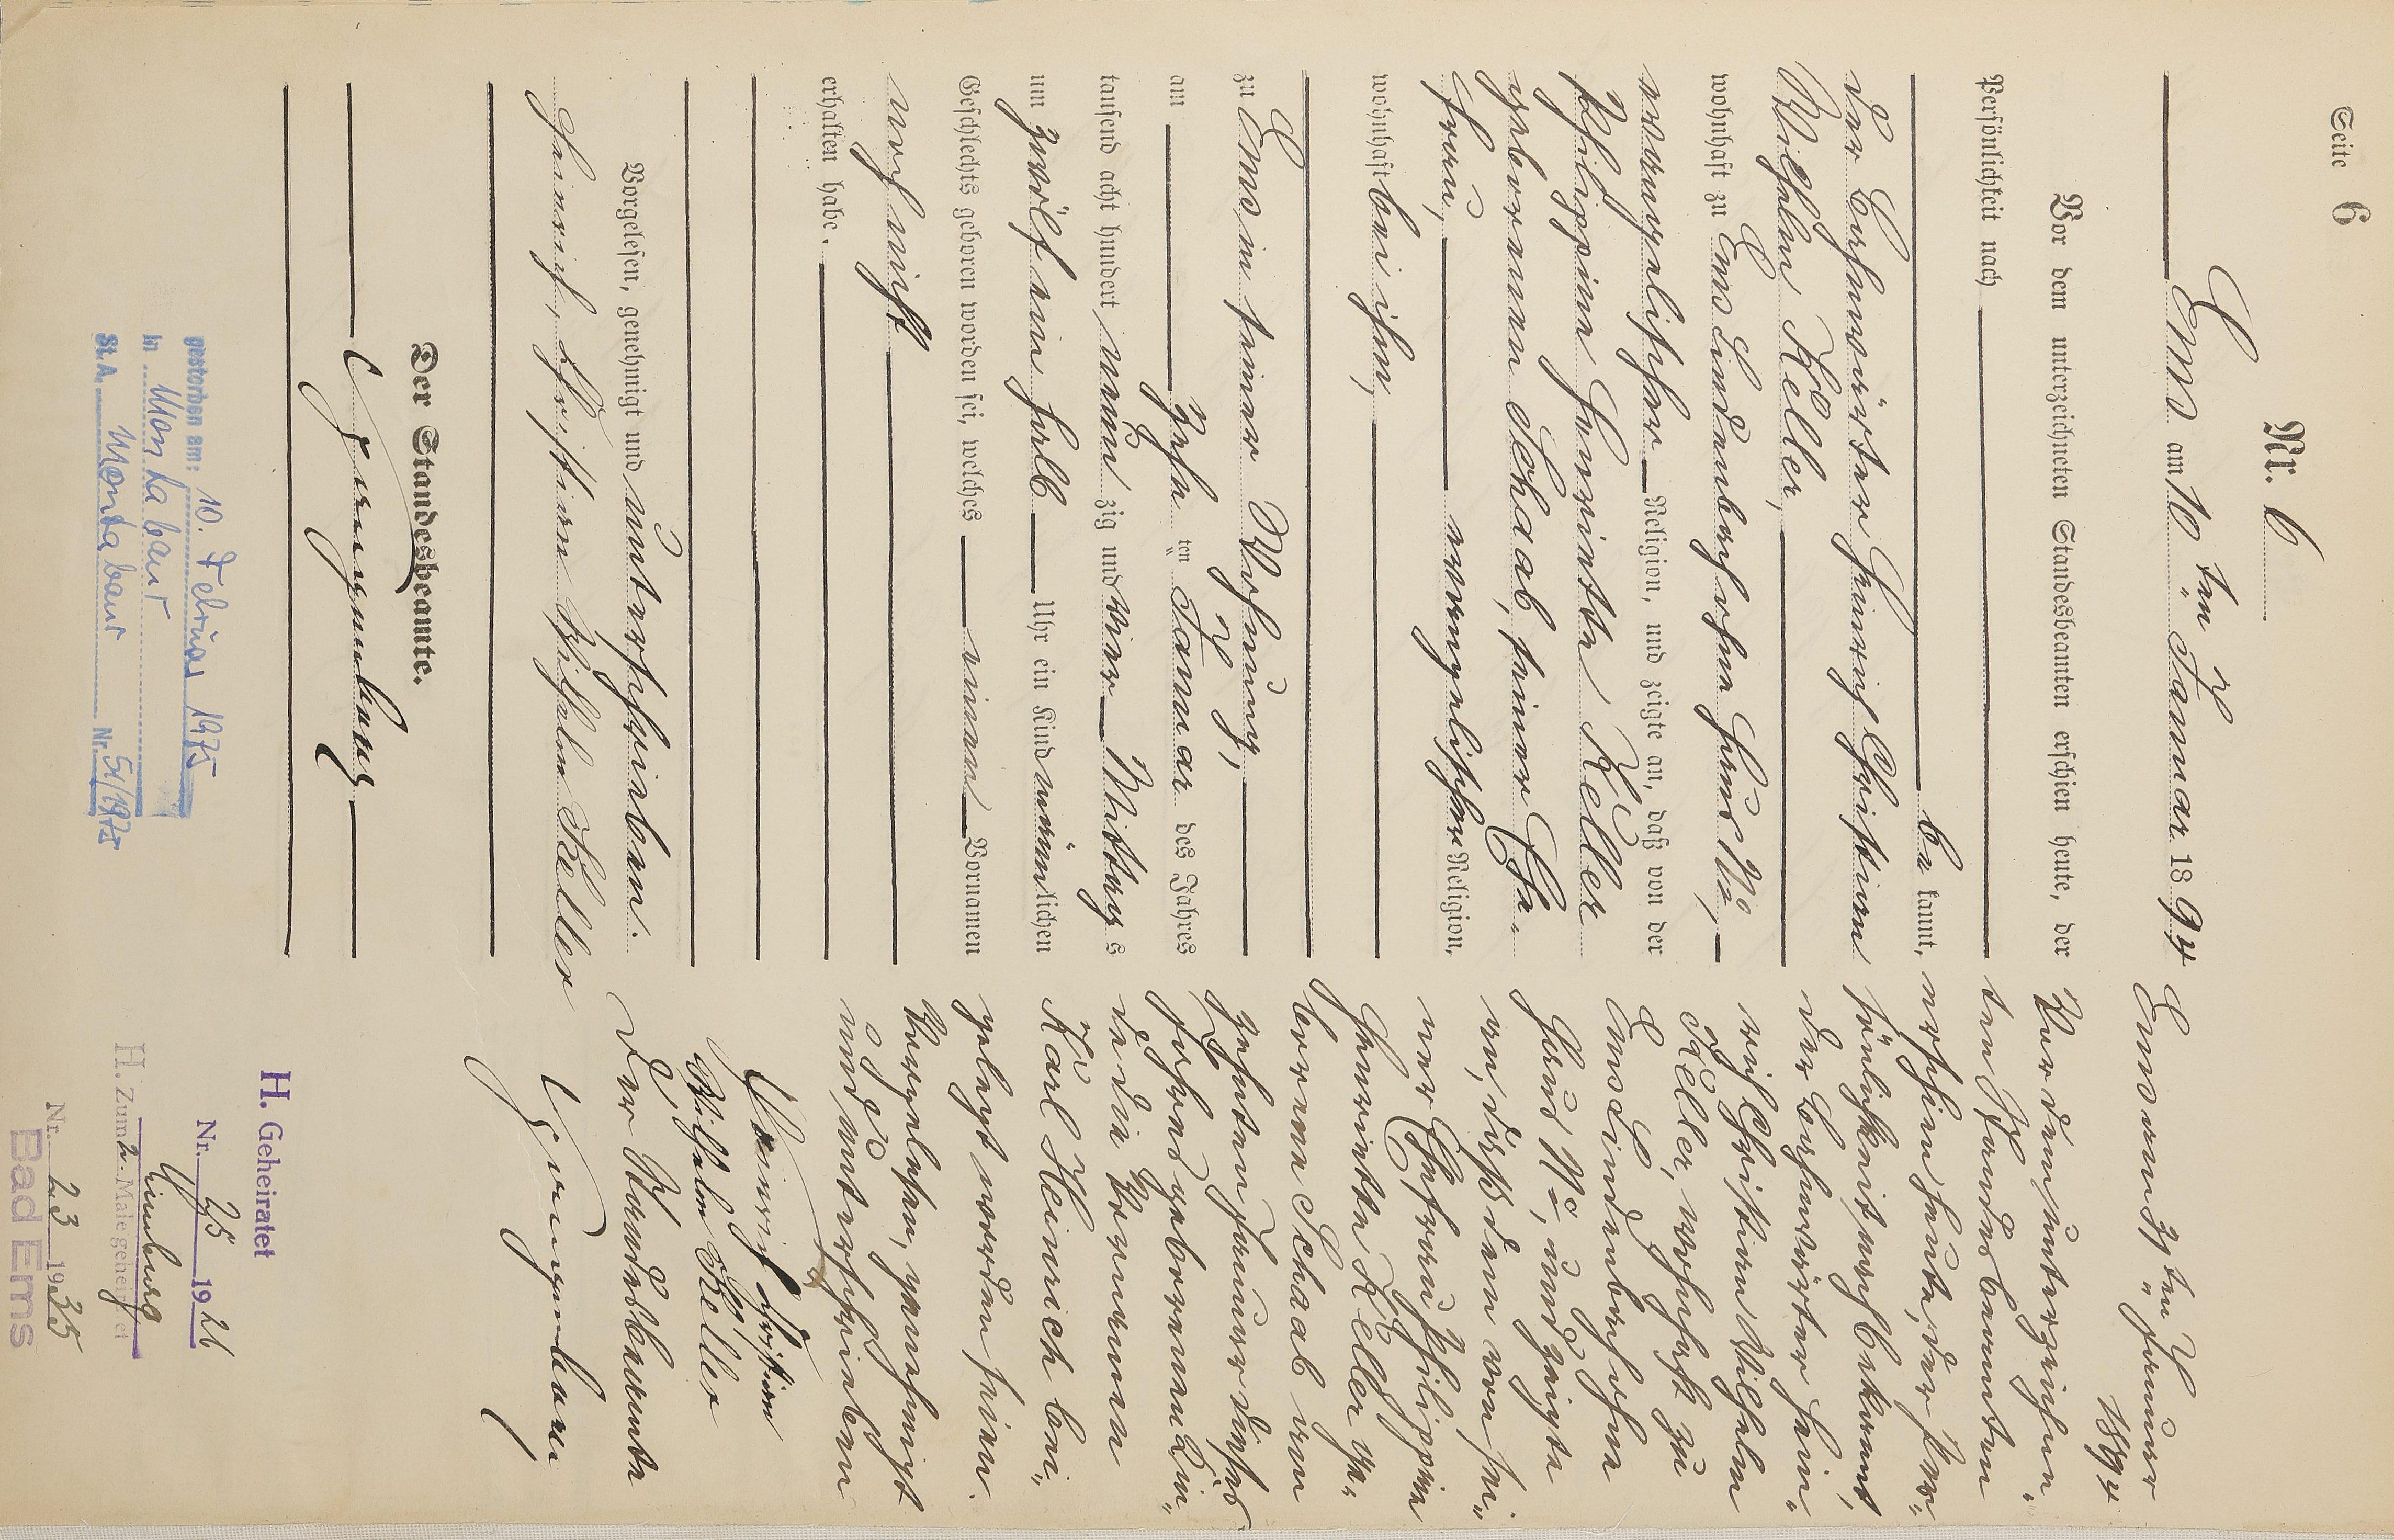 Seite 6
Nr. 6
Ems am 10 ten Januar 1894
Vor dem unterzeichneten Standesbeamten erschien heute, der
Persönlichkeit nach
be kannt,
der Bahnwärter Heinrich Christian
Wilhelm Keller,
wohnhaft zu Ems Lindenbach ohne Haus No,
evangelischer Religion, und zeigte an, daß von der
Philippine Henriette Keller
geborenen Schaab, seiner Ehe-
frau,
evangelischer Religion,
wohnhaft bei ihm,
zu Ems in seiner Wohnung,
am zehn ten Januar des Jahres
tausend acht hundert neun zig und vier Mittags
um zwölf ein halb Uhr ein Kind männlichen
Geschlechts geboren worden sei, welches einen Vornamen
noch nicht
erhalten habe.
Vorgelesen, genehmigt und unterschrieben.
Heinrich, Christian Wilhelm Keller
Der Standesbeamte.
gestorben am: 10. Februar 1975
in Montabaur
St.A. Montabaur Nr. 51/1975
Ems am 31 ten Januar
1894
Vor dem unterzeichne-
ten Standesbeamten
erschien heute, der Per-
sönlichkeit nach bekannt,
der Bahnwärter Hein-
rich Christian Wilhelm
Keller, wohnhaft zu
Ems Lindenbach ohne
Haus No, und zeigte
an, daß dem von sei-
ner Ehefrau Philippine
Henriette Keller ge-
borene Schaab am
zehnten Januar dieses
Jahres geborenen Kin-
de die Vornamen
Karl Heinrich bei-
gelegt worden seien.
Vorgelesen, genehmigt
und unterschrieben
Heinrich Christian
Wilhelm Keller
Der Standesbeamte
H. Geheiratet
Nr. 25 1926
Limburg
H. Zum 2. Male geheiratet
Nr. 23 1935
Bad Ems